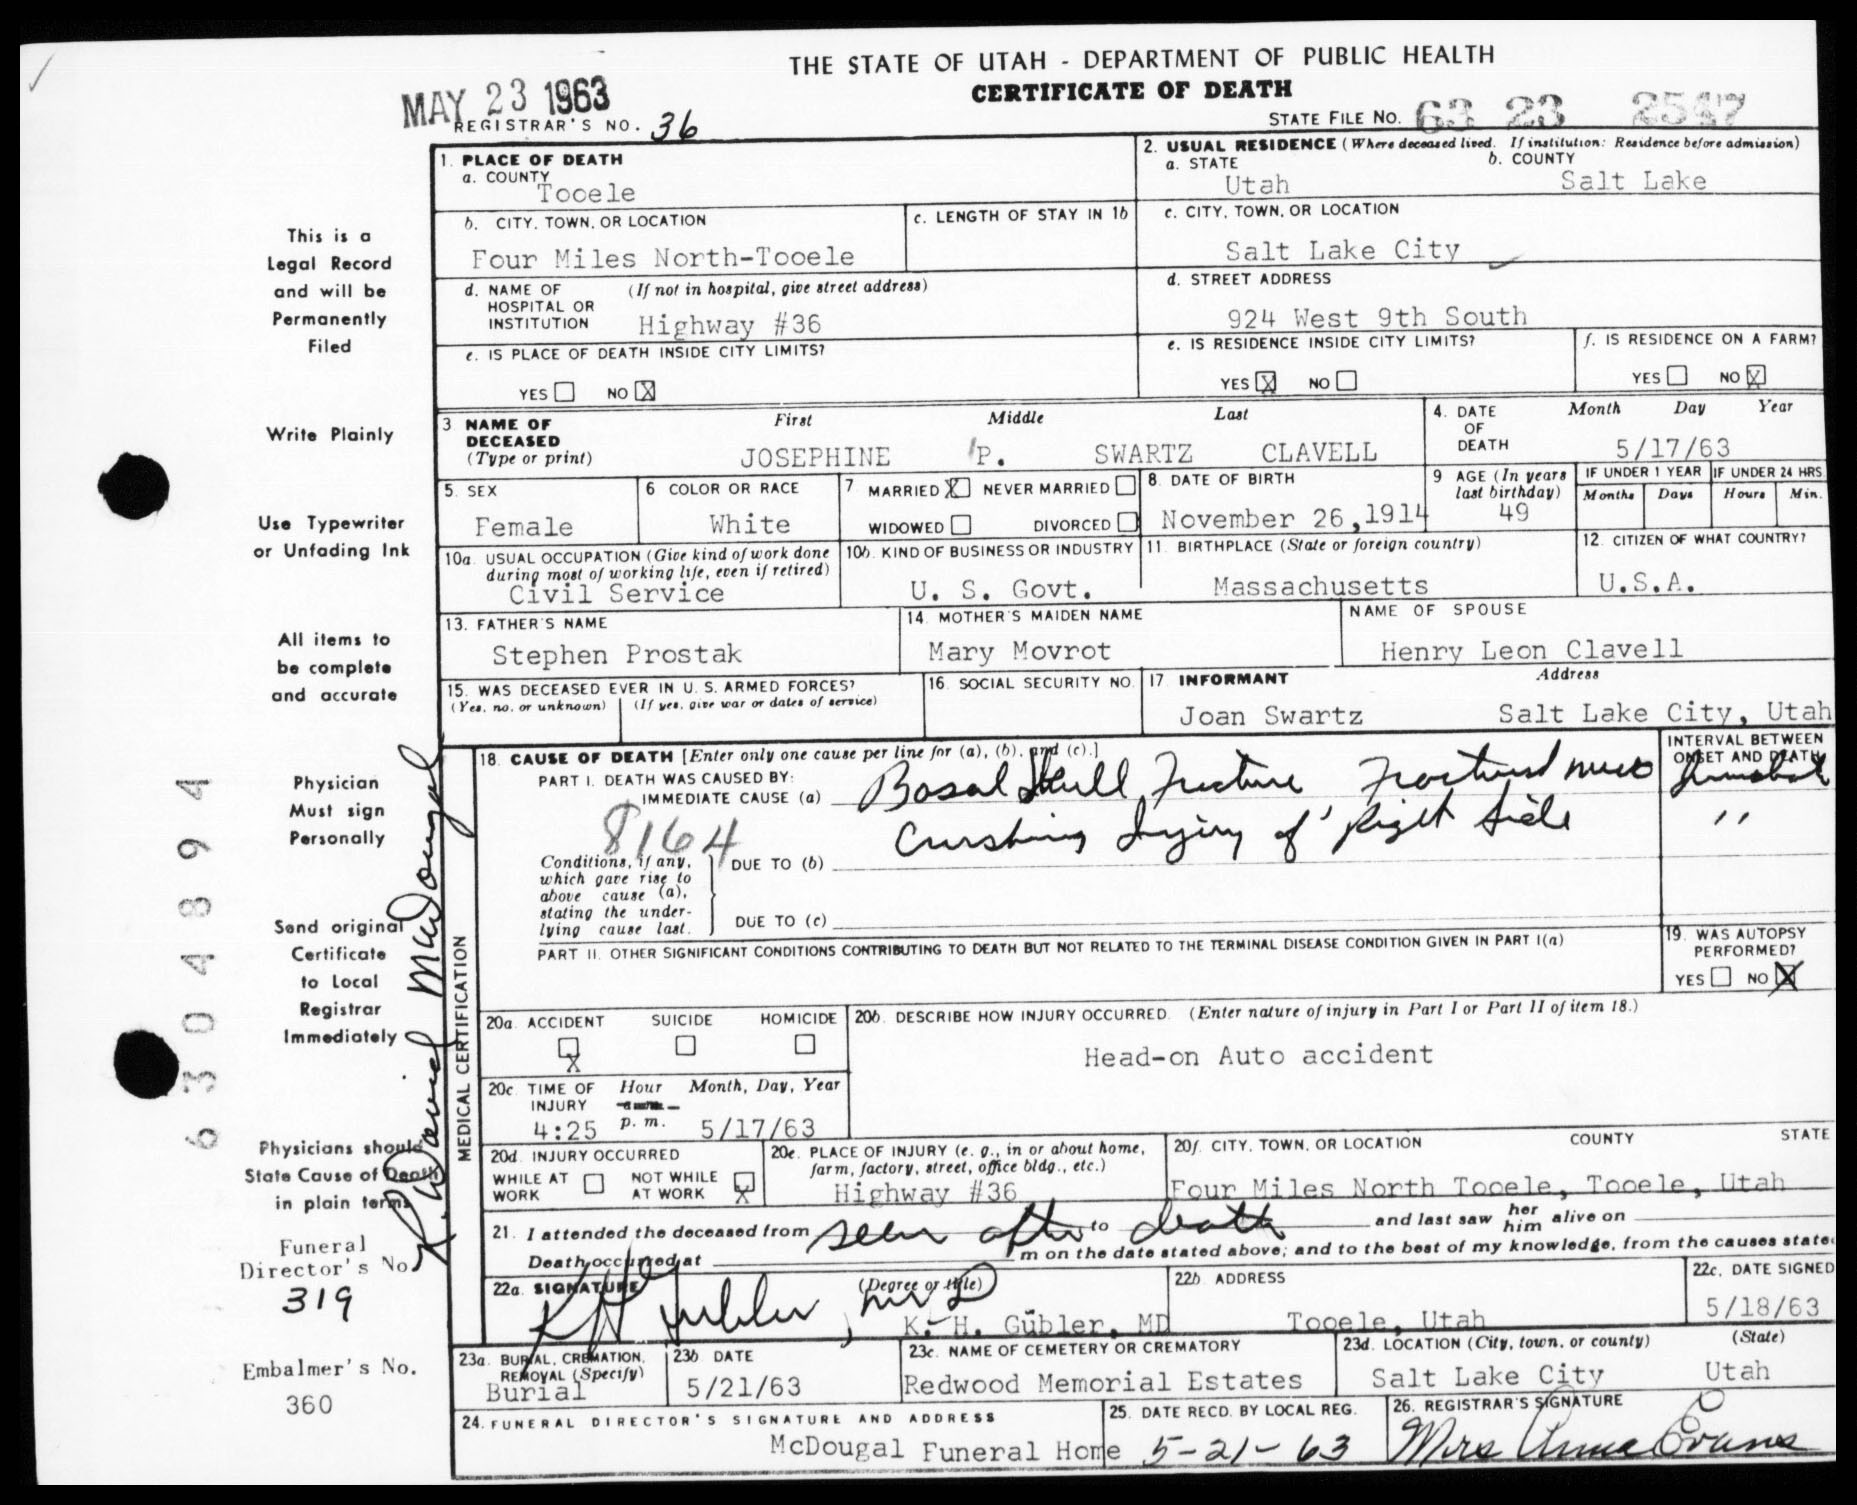 THE STATE OF UTAH - DEPARTMENT OF PUBLIC HEALTH
CERTIFICATE OF DEATH
MAY 23 1963
REGISTRAR'S NO. 36
STATE FILE NO. 63 23 2547
1. PLACE OF DEATH
a. COUNTY
Tooele
2. USUAL RESIDENCE (Where deceased lived. If institution: Residence before admission)
a. STATE b. COUNTY
Utah Salt Lake
b. CITY, TOWN, OR LOCATION
Four Miles North-Tooele
c. LENGTH OF STAY IN 1b
c. CITY, TOWN, OR LOCATION
Salt Lake City
d. NAME OF HOSPITAL OR INSTITUTION (If not in hospital, give street address)
Highway #36
d. STREET ADDRESS
924 West 9th South
e. IS PLACE OF DEATH INSIDE CITY LIMITS?
YES NO X
e. IS RESIDENCE INSIDE CITY LIMITS?
YES X NO
f. IS RESIDENCE ON A FARM?
YES NO X
3 NAME OF DECEASED (Type or print)
First Middle Last
JOSEPHINE P. SWARTZ CLAVELL
4. DATE OF DEATH
Month Day Year
5/17/63
5. SEX
Female
6 COLOR OR RACE
White
7 MARRIED X NEVER MARRIED
WIDOWED DIVORCED
8. DATE OF BIRTH
November 26,1914
9 AGE (In years last birthday)
49
IF UNDER 1 YEAR
Months Days
IF UNDER 24 HRS.
Hours Min.
10a. USUAL OCCUPATION (Give kind of work done during most of working life, even if retired)
Civil Service
10b. KIND OF BUSINESS OR INDUSTRY
U. S. Govt.
11. BIRTHPLACE (State or foreign country)
Massachusetts
12. CITIZEN OF WHAT COUNTRY?
U.S.A.
13. FATHER'S NAME
Stephen Prostak
14. MOTHER'S MAIDEN NAME
Mary Movrot
NAME OF SPOUSE
Henry Leon Clavell
15. WAS DECEASED EVER IN U. S. ARMED FORCES?
(Yes, no, or unknown) (If yes, give war or dates of service)
16. SOCIAL SECURITY NO.
17. INFORMANT Address
Joan Swartz Salt Lake City, Utah
18. CAUSE OF DEATH [Enter only one cause per line for (a), (b), and (c).]
INTERVAL BETWEEN ONSET AND DEATH
PART I. DEATH WAS CAUSED BY:
IMMEDIATE CAUSE (a) Basal Skull Fracture Fractured neck
Crushing Injury of Right Side "
8164
Conditions, if any, which gave rise to above cause (a), stating the underlying cause last.
DUE TO (b)
DUE TO (c)
PART II. OTHER SIGNIFICANT CONDITIONS CONTRIBUTING TO DEATH BUT NOT RELATED TO THE TERMINAL DISEASE CONDITION GIVEN IN PART I(a)
19. WAS AUTOPSY PERFORMED?
YES NO X
MEDICAL CERTIFICATION
20a. ACCIDENT SUICIDE HOMICIDE
X
20b. DESCRIBE HOW INJURY OCCURRED. (Enter nature of injury in Part I or Part II of item 18.)
Head-on Auto accident
20c. TIME OF INJURY Hour Month, Day, Year
4:25 p. m. 5/17/63
20d. INJURY OCCURRED
WHILE AT WORK NOT WHILE AT WORK X
20e. PLACE OF INJURY (e. g., in or about home, farm, factory, street, office bldg., etc.)
Highway #36
20f. CITY, TOWN, OR LOCATION COUNTY STATE
Four Miles North Tooele, Tooele, Utah
21. I attended the deceased from seen after to death and last saw her him alive on
Death occurred at m on the date stated above; and to the best of my knowledge, from the causes state
22a. SIGNATURE (Degree or title)
K H Gubler, M D
K. H. Gübler, MD
22b. ADDRESS
Tooele, Utah
22c. DATE SIGNED
5/18/63
23a. BURIAL, CREMATION, REMOVAL (Specify)
Burial
23b. DATE
5/21/63
23c. NAME OF CEMETERY OR CREMATORY
Redwood Memorial Estates
23d. LOCATION (City, town, or county) (State)
Salt Lake City Utah
24. FUNERAL DIRECTOR'S SIGNATURE AND ADDRESS
McDougal Funeral Home
25. DATE RECD. BY LOCAL REG.
5-21-63
26. REGISTRAR'S SIGNATURE
Mrs Anna Evans
This is a
Legal Record
and will be
Permanently
Filed
Write Plainly
Use Typewriter
or Unfading Ink
All items to
be complete
and accurate
Physician
Must sign
Personally
Send original
Certificate
to Local
Registrar
Immediately
Physicians should
State Cause of Death
in plain terms
Funeral
Director's No.
319
Embalmer's No.
360
R. David McDougal
6304894